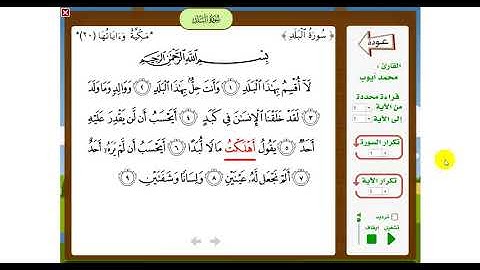 سورة البلد
﴿ سُورَةُ البَلَدِ ﴾
"مَكِّيَّة وَءَايَاتُهَا (٢٠)"
بِسْمِ اللَّهِ الرَّحْمَٰنِ الرَّحِيمِ
لَآ أُقْسِمُ بِهَٰذَا الْبَلَدِ ١ وَأَنتَ حِلٌّۢ بِهَٰذَا الْبَلَدِ ٢ وَوَالِدٍ وَمَا وَلَدَ
٣ لَقَدْ خَلَقْنَا الْإِنسَٰنَ فِى كَبَدٍ ٤ أَيَحْسَبُ أَن لَّن يَقْدِرَ عَلَيْهِ
أَحَدٌ ٥ يَقُولُ أَهْلَكْتُ مَالًا لُّبَدًا ٦ أَيَحْسَبُ أَن لَّمْ يَرَهُۥٓ أَحَدٌ
٧ أَلَمْ نَجْعَل لَّهُۥ عَيْنَيْنِ ٨ وَلِسَانًا وَشَفَتَيْنِ ٩
عودة
القارئ :
محمد أيوب
قراءة محددة
من الآية
إلى الآية
تكرار السورة
تكرار الآية
ترديد
تشغيل إيقاف